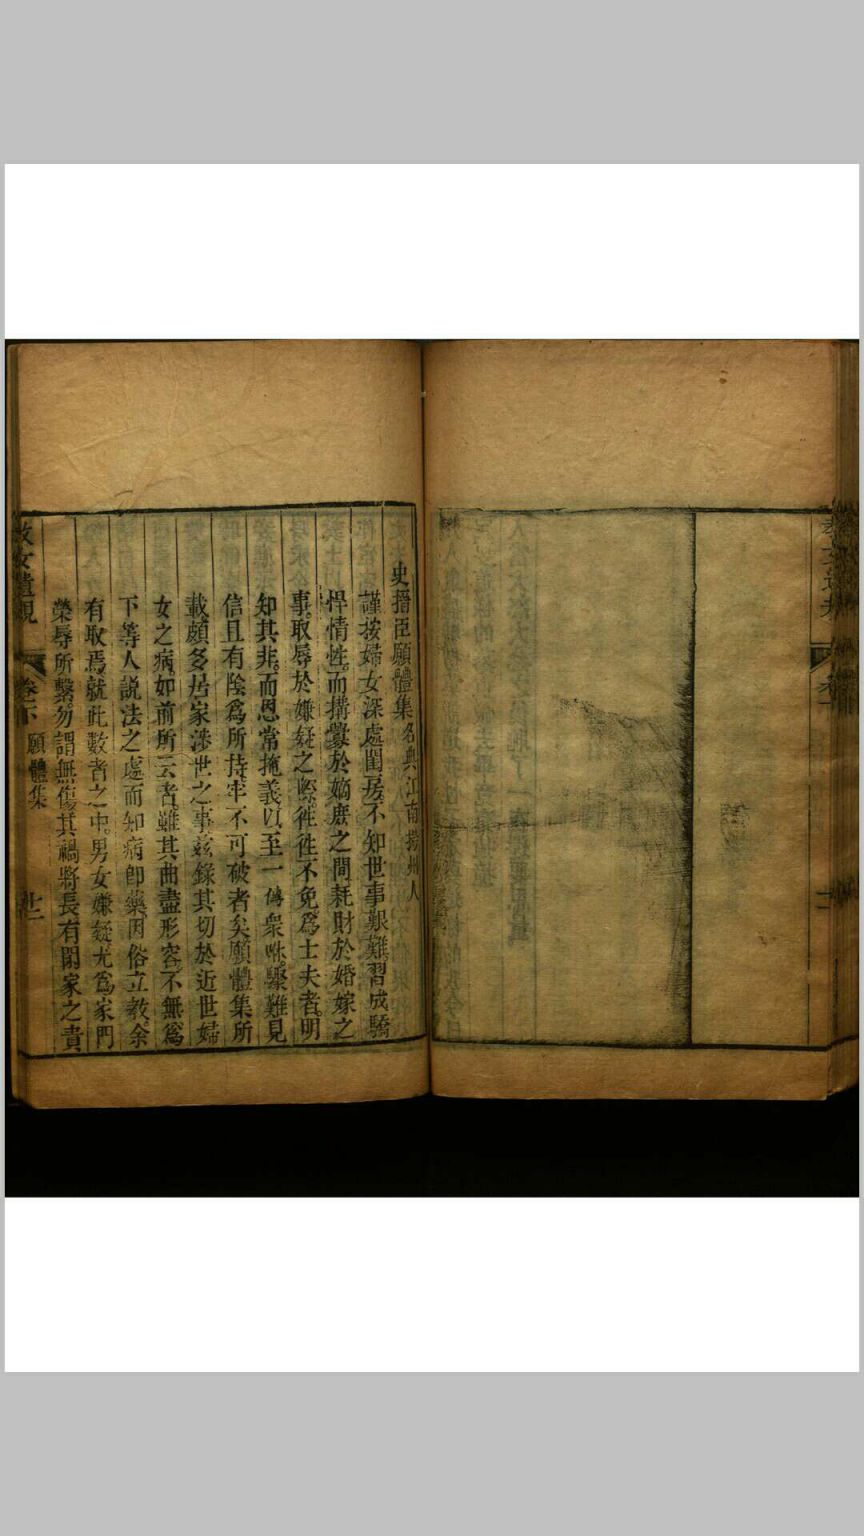 史搢臣願體集名典江南揚州人
謹按婦女深處閨房不知世事艱難習成驕
悍情性而搆釁於嫡庶之間耗財於婚嫁之
事取辱於嫌疑之際徃徃不免為士夫者明
知其非而恩常掩義以至一傳衆咻驟難見
信且有陰為所持牢不可破者矣願體集所
載頗多居家涉世之事玆錄其切於近世婦
女之病如前所云者雖其曲盡形容不無為
下等人說法之處而知病即藥因俗立敎余
有取焉就此數者之中男女嫌疑尤為家門
榮辱所繫勿謂無傷其禍將長有閑家之責
教女遺規
卷下
願體集
廿二